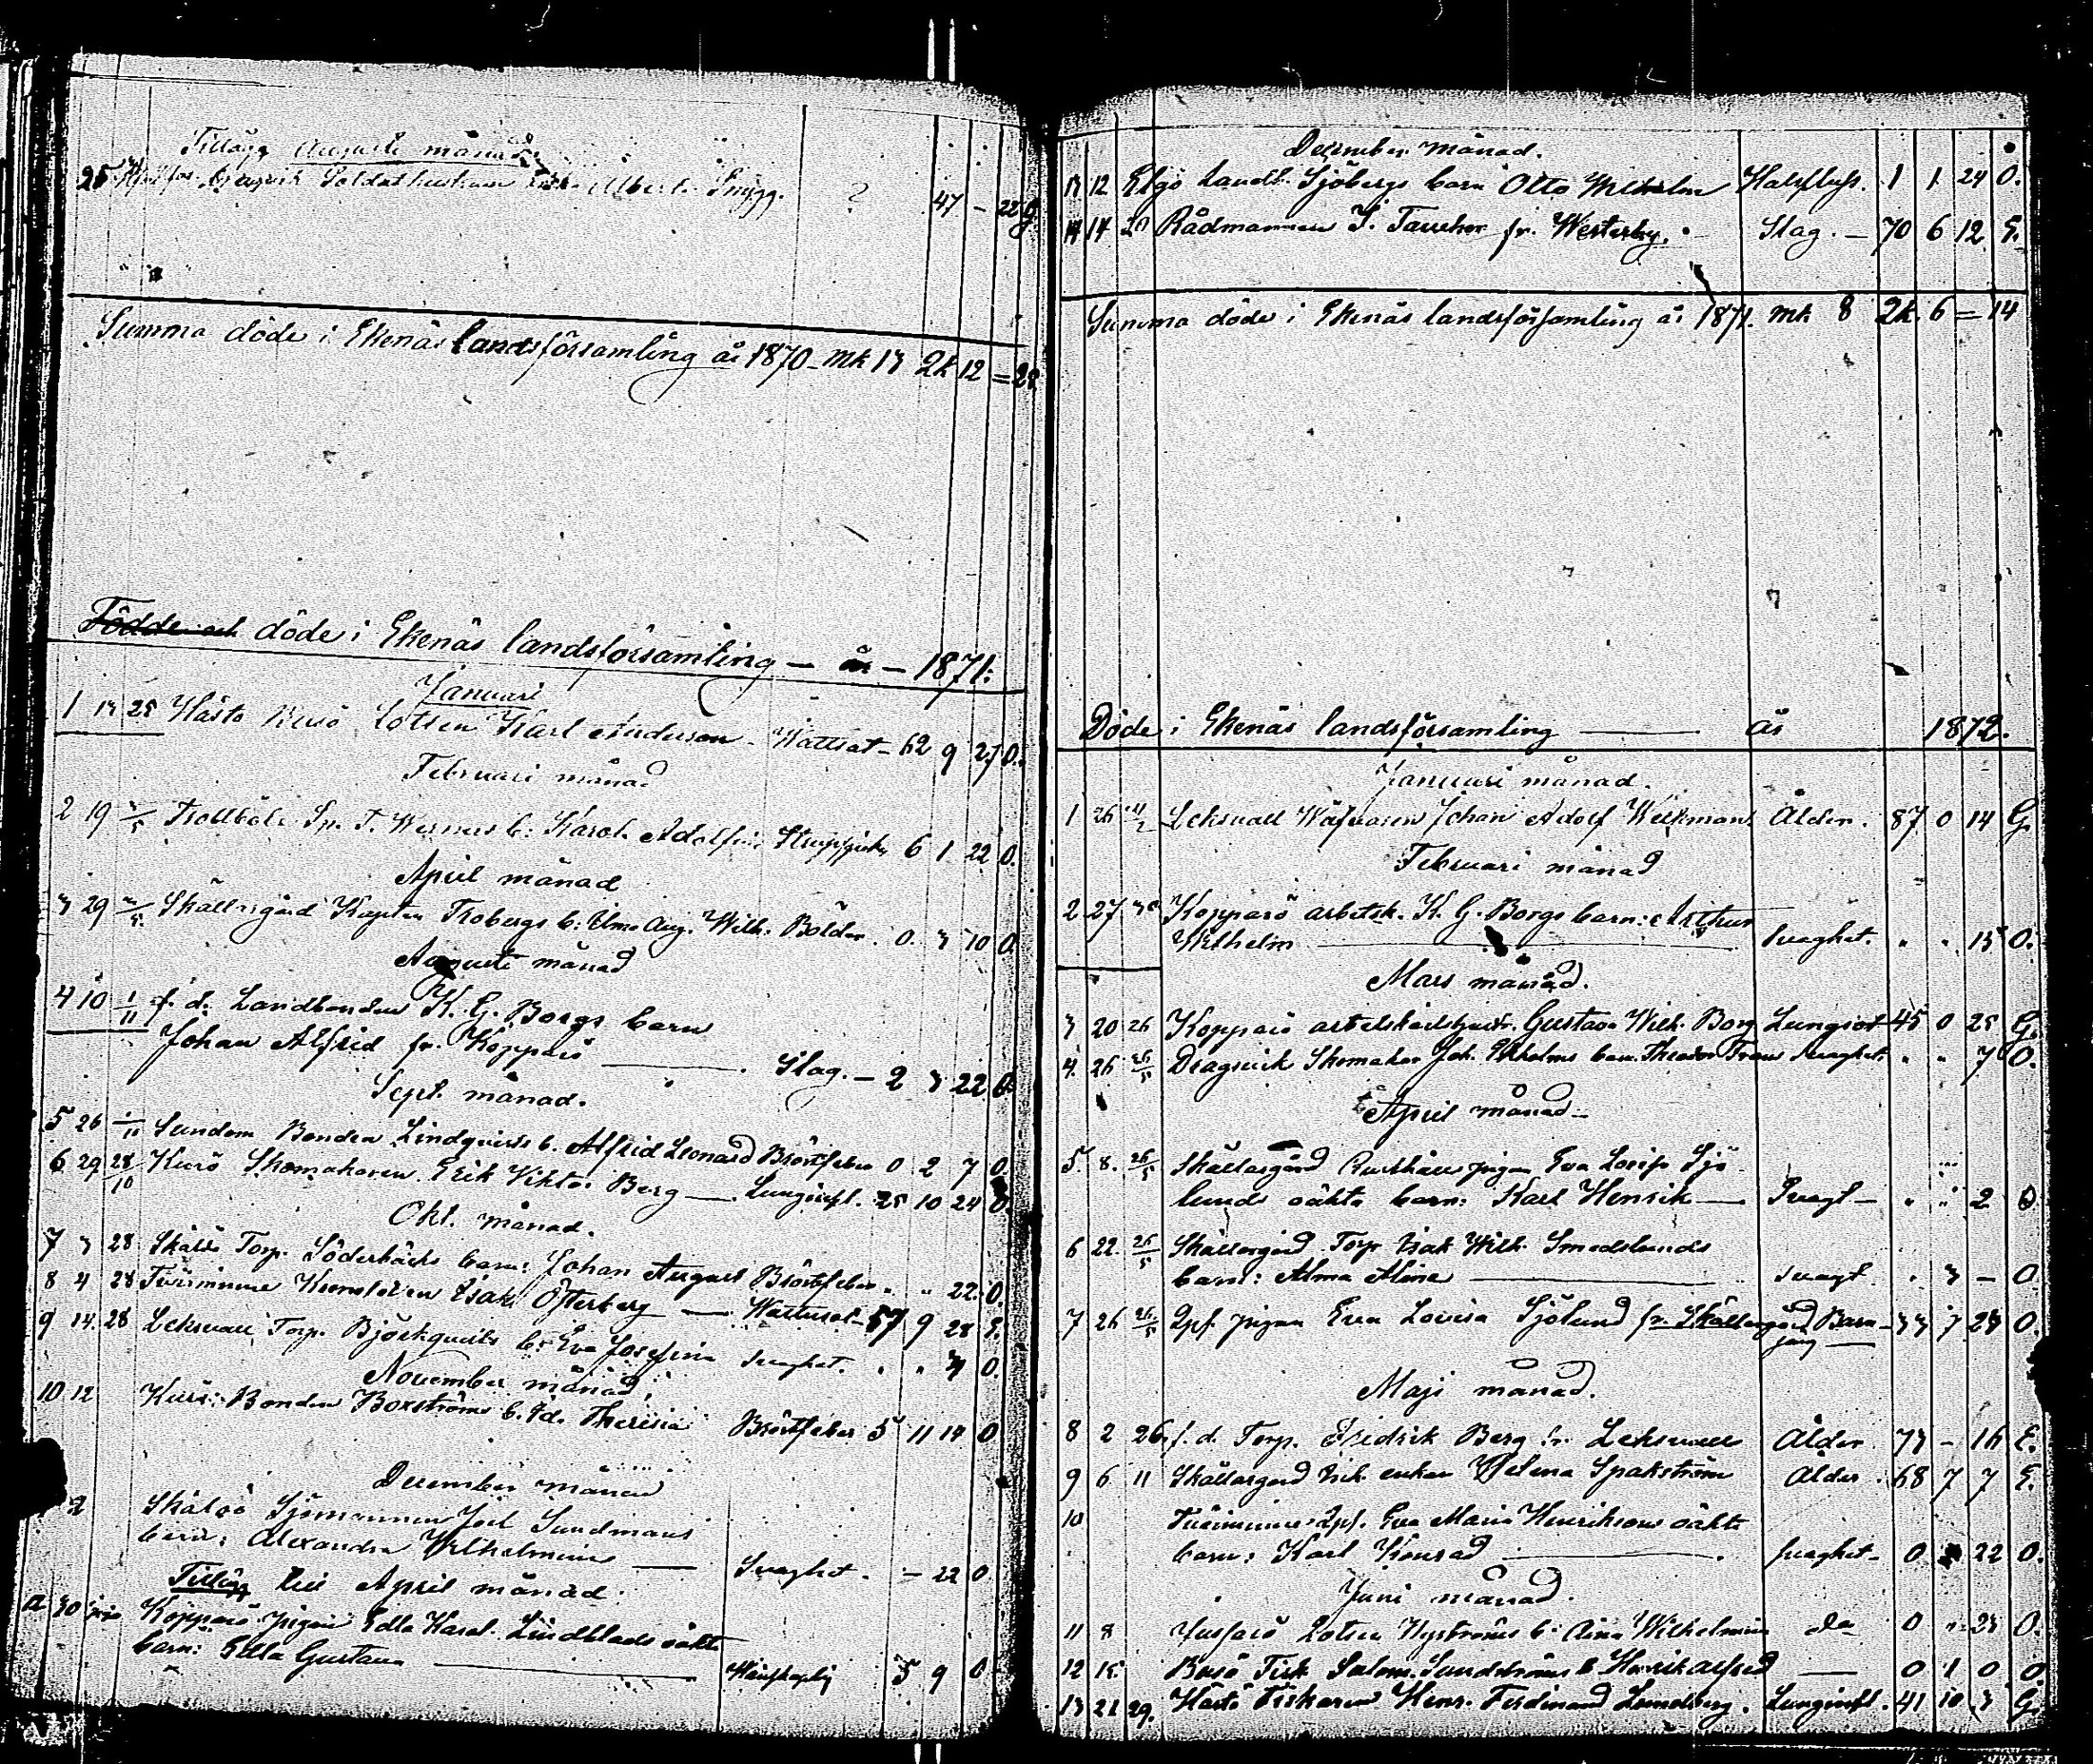 Tillägg Augusti månad
25 Soldathustrun Albert. Snygg. ? 47 — 22 G
Summa döde i Ekenäs landsförsamling år 1870 — Mk 13 Qk 12 =
Födde och döde i Ekenäs landsförsamling — år — 1871.
Januari
1 13 25 Hästö Busö Lotsen Karl Anderson — Wattsot — 62 9 27 O.
Februari månad
2 19 Trollböle Sp. T. Werners b: Karol. Adolfin. 6 1 22 O.
April månad
3 29 Skållargård Kapten Frobergs b: Elma Aug. Wilh. Bölder. 0. 3 10 O
Augusti månad
4 10 1/11 f. d. Landbonden K. G. Borgs barn
Johan Alfrid fr. Kopparö — Slag. — 2 3 22 O
Sept. månad.
5 26 Sundom Bonden Lindqvists b. Alfrid Leonard Bröstfeber 0 2 7 O.
6 29 28/10 Skomakaren Erik Viktor Berg — Lunginfl. 25 10 24 O.
Okt. månad.
7 3 28 Skåldö Torp. Söderbäcks barn: Johan August Bröstfeber " " 22. O.
8 4 28 Tvärminne Isak Öfterberg — Wattusot — 57 9 28 E.
9 14. 28 Leksvall Torp. Björkqvists b: Eva Josefina Svaghet. " " O.
November månad
10 12 Bonden Boxströms b. Ida Theresia Bröstfeber 5 11 14 O
December månad
2 Skåldö Sjömannen Joel Sundmans
barn: Alexandra Wilhelmina — Svaghet. — 22 O
Tillägg till April månad.
12 30 Kopparö pigan Edla Karol. Lindblads oäkta
barn: Edla Gustava — 5 9 O
December månad.
13 12 Elgö Landb. Sjöbergs barn Otto Wilhelm Halsfluss. 1 1 24 O.
14 14 Rådmannen J. Taucher fr. Westerby. Slag. — 70 6 12 E.
Summa döde i Ekenäs landsförsamling år 1871. Mk 8 Qk. 6 = 14
Döde i Ekenäs landsförsamling — år 1872.
Januari månad.
1 26 Leksvall Wäfvaren Johan Adolf Wickman Ålder. 87 0 14 G.
Februari månad
2 27 Kopparö arbetsk. K. G. Borgs barn: Arthur
Wilhelm — Svaghet. " " 15 O.
Mars månad.
3 20 26 Kopparö Gustava Wilh. Borg Lungsot 45 0 25 G.
4. 26 26/5 Dragsvik Skomakar Joh. Ekholms barn Theodor Frans Svaghet. " " 7 O.
April månad —
5. 8. 26/5 Skållargård pigan Eva Lovisa Sjö-
lunds oäkta barn: Karl Henrik — Svagt — " " 2 O
6 22 26/5 Skållargård Torp Isak Wilh. Smedslunds
barn: Alma Aline — svagt. . 3 — O
7 26 26/5 Qpf. pigan Eva Lovisa Sjölund fr. Skållargård Barn- 33 7 23 O.
säng —
Maji månad.
8 2 26 f. d. Torp. Fredrik Berg fr. Leksvall Ålder 73 — 16 E.
9 6 11 Skållargård enkan Helena Spakström Ålder 68 7 7 E.
10 Tvärminne Qpf. Eva Maria Henriksons oäkta
barn: Karl Konrad — svaghet — 0 22 O.
Juni månad.
11 8 Jussarö Lotsen Nyströms b: Aina Wilhelmina do 0 " 23 O.
12 15 Busö Fisk. Salom. Sundströms b Henrik Alfred — 0 1 0 O
13 21 29. Hästö Fiskaren Henr. Ferdinand Lindberg. Lunginfl. 41 10 3 G.